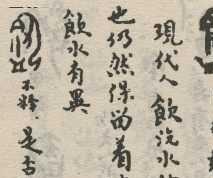 現代人飲汽水
也仍然保留着
飲水有異
是古